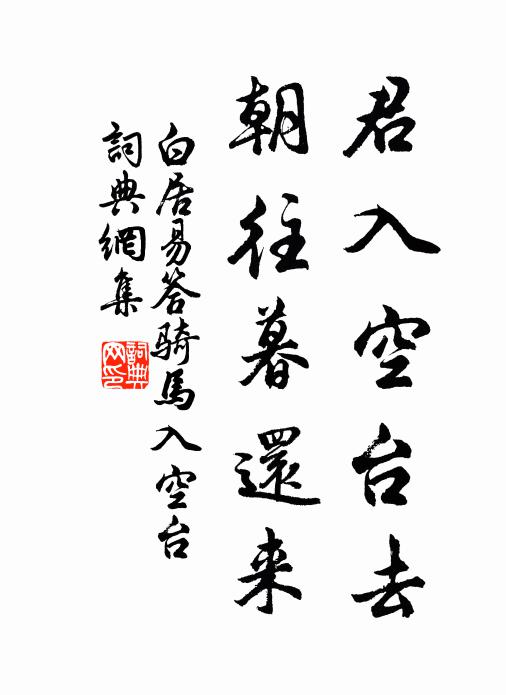 君入空台去
朝往暮還来
白居易答騎馬入空台
詞典網集
詞典网印